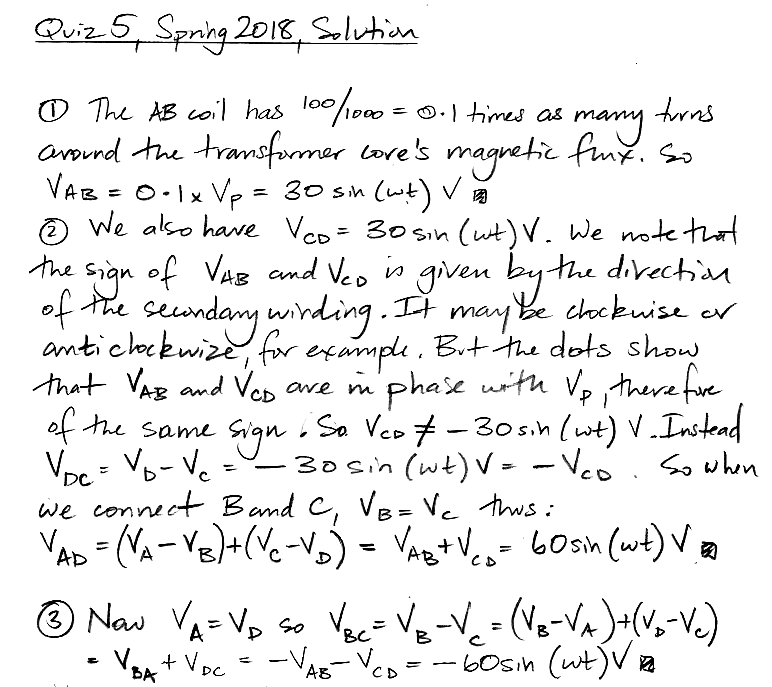 Quiz 5, Spring 2018, Solution
① The AB coil has 100/1000 = 0.1 times as many turns
around the transformer core's magnetic flux. So
V_AB = 0.1 x V_P = 30 sin (ωt) V ▨
② We also have V_CD = 30 sin (ωt) V. We note that
the sign of V_AB and V_CD is given by the direction
of the secondary winding. It may be clockwise or
anticlockwize, for example. But the dots show
that V_AB and V_CD are in phase with V_P, therefore
of the same sign. So V_CD ≠ - 30 sin (ωt) V. Instead
V_DC = V_D - V_C = - 30 sin (ωt) V = - V_CD. So when
we connect B and C, V_B = V_C thus:
V_AD = (V_A - V_B)+(V_C - V_D) = V_AB + V_CD = 60 sin (ωt) V ▨
③ Now V_A = V_D so V_BC = V_B - V_C = (V_B - V_A)+(V_D - V_C)
= V_BA + V_DC = -V_AB - V_CD = - 60 sin (ωt) V ▨